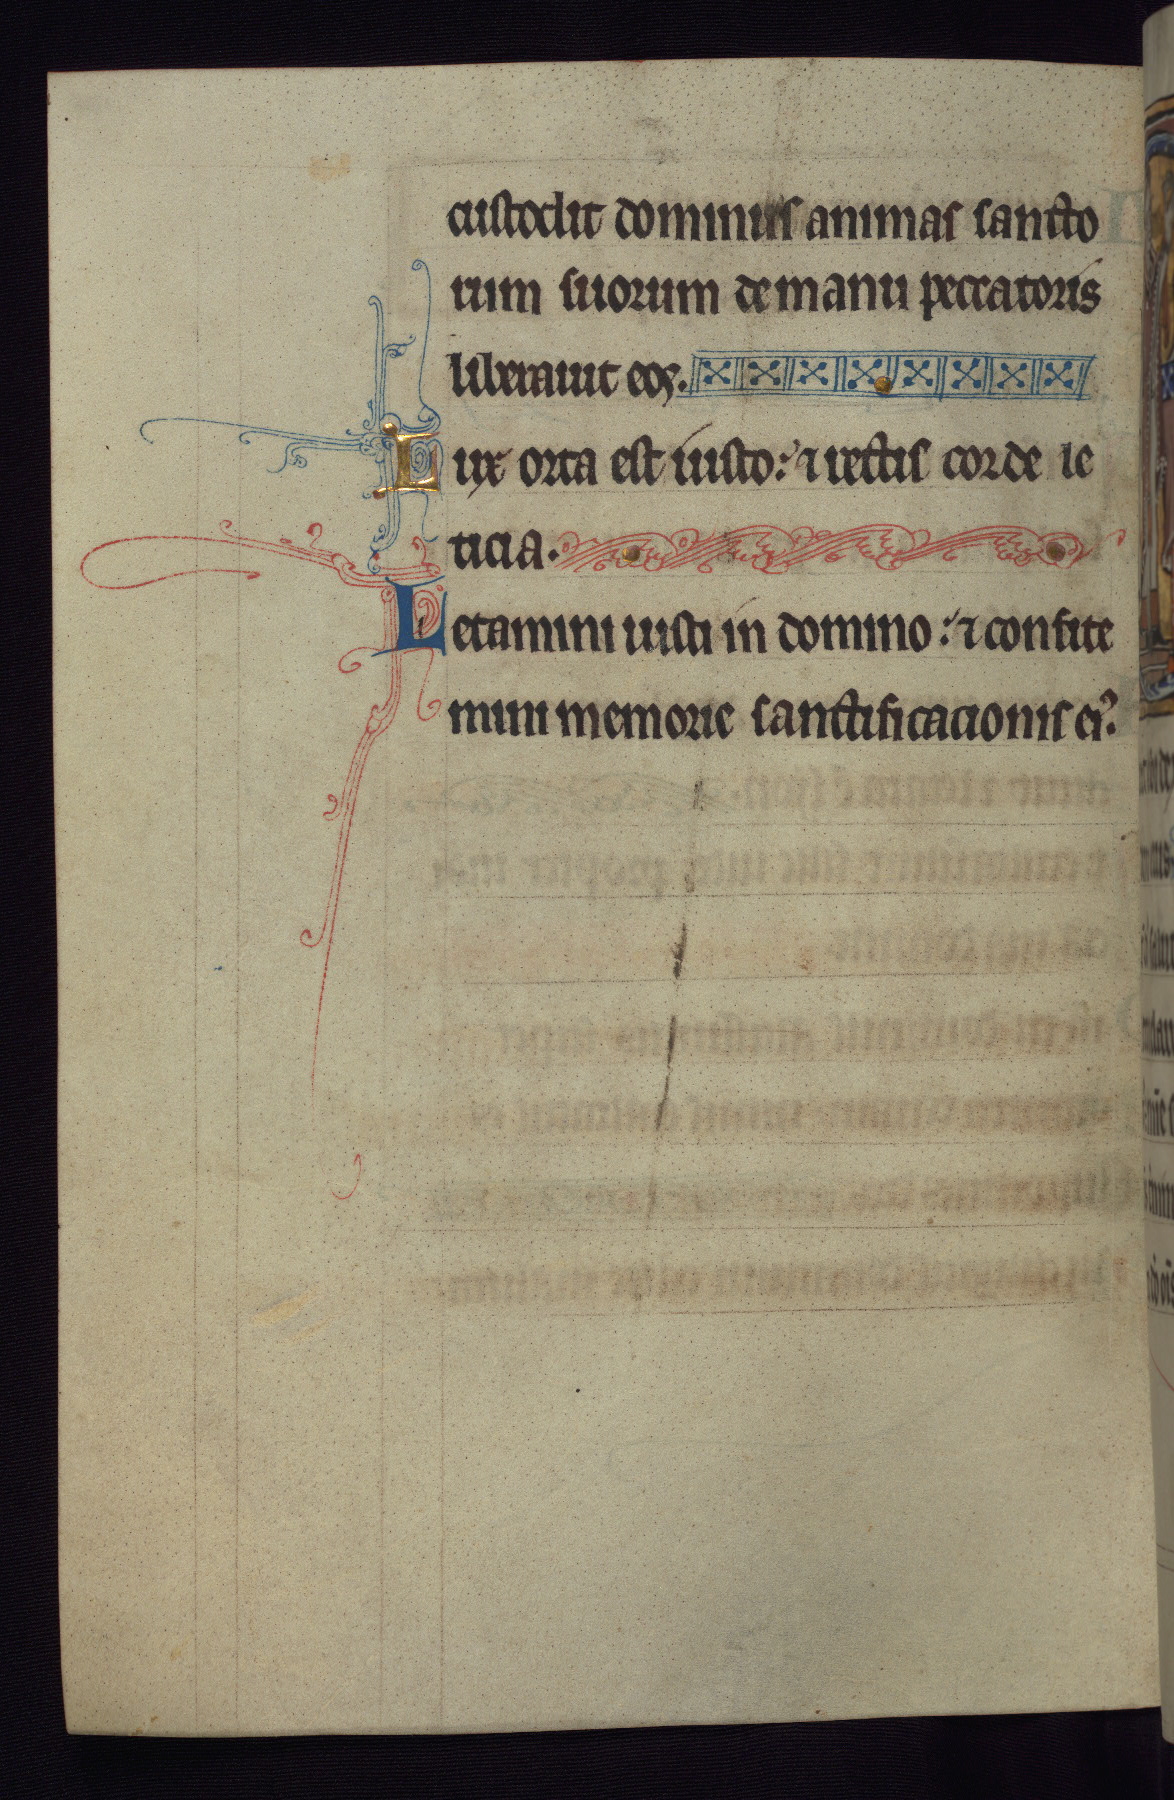 custodit dominus animas sancto
rum suorum de manu peccatoris
liberauit eos.
Lux orta est iusto: ⁊ rectis corde le
ticia.
Letamini iusti in domino: ⁊ confite
mini memorie sanctificacionis eiꝰ.